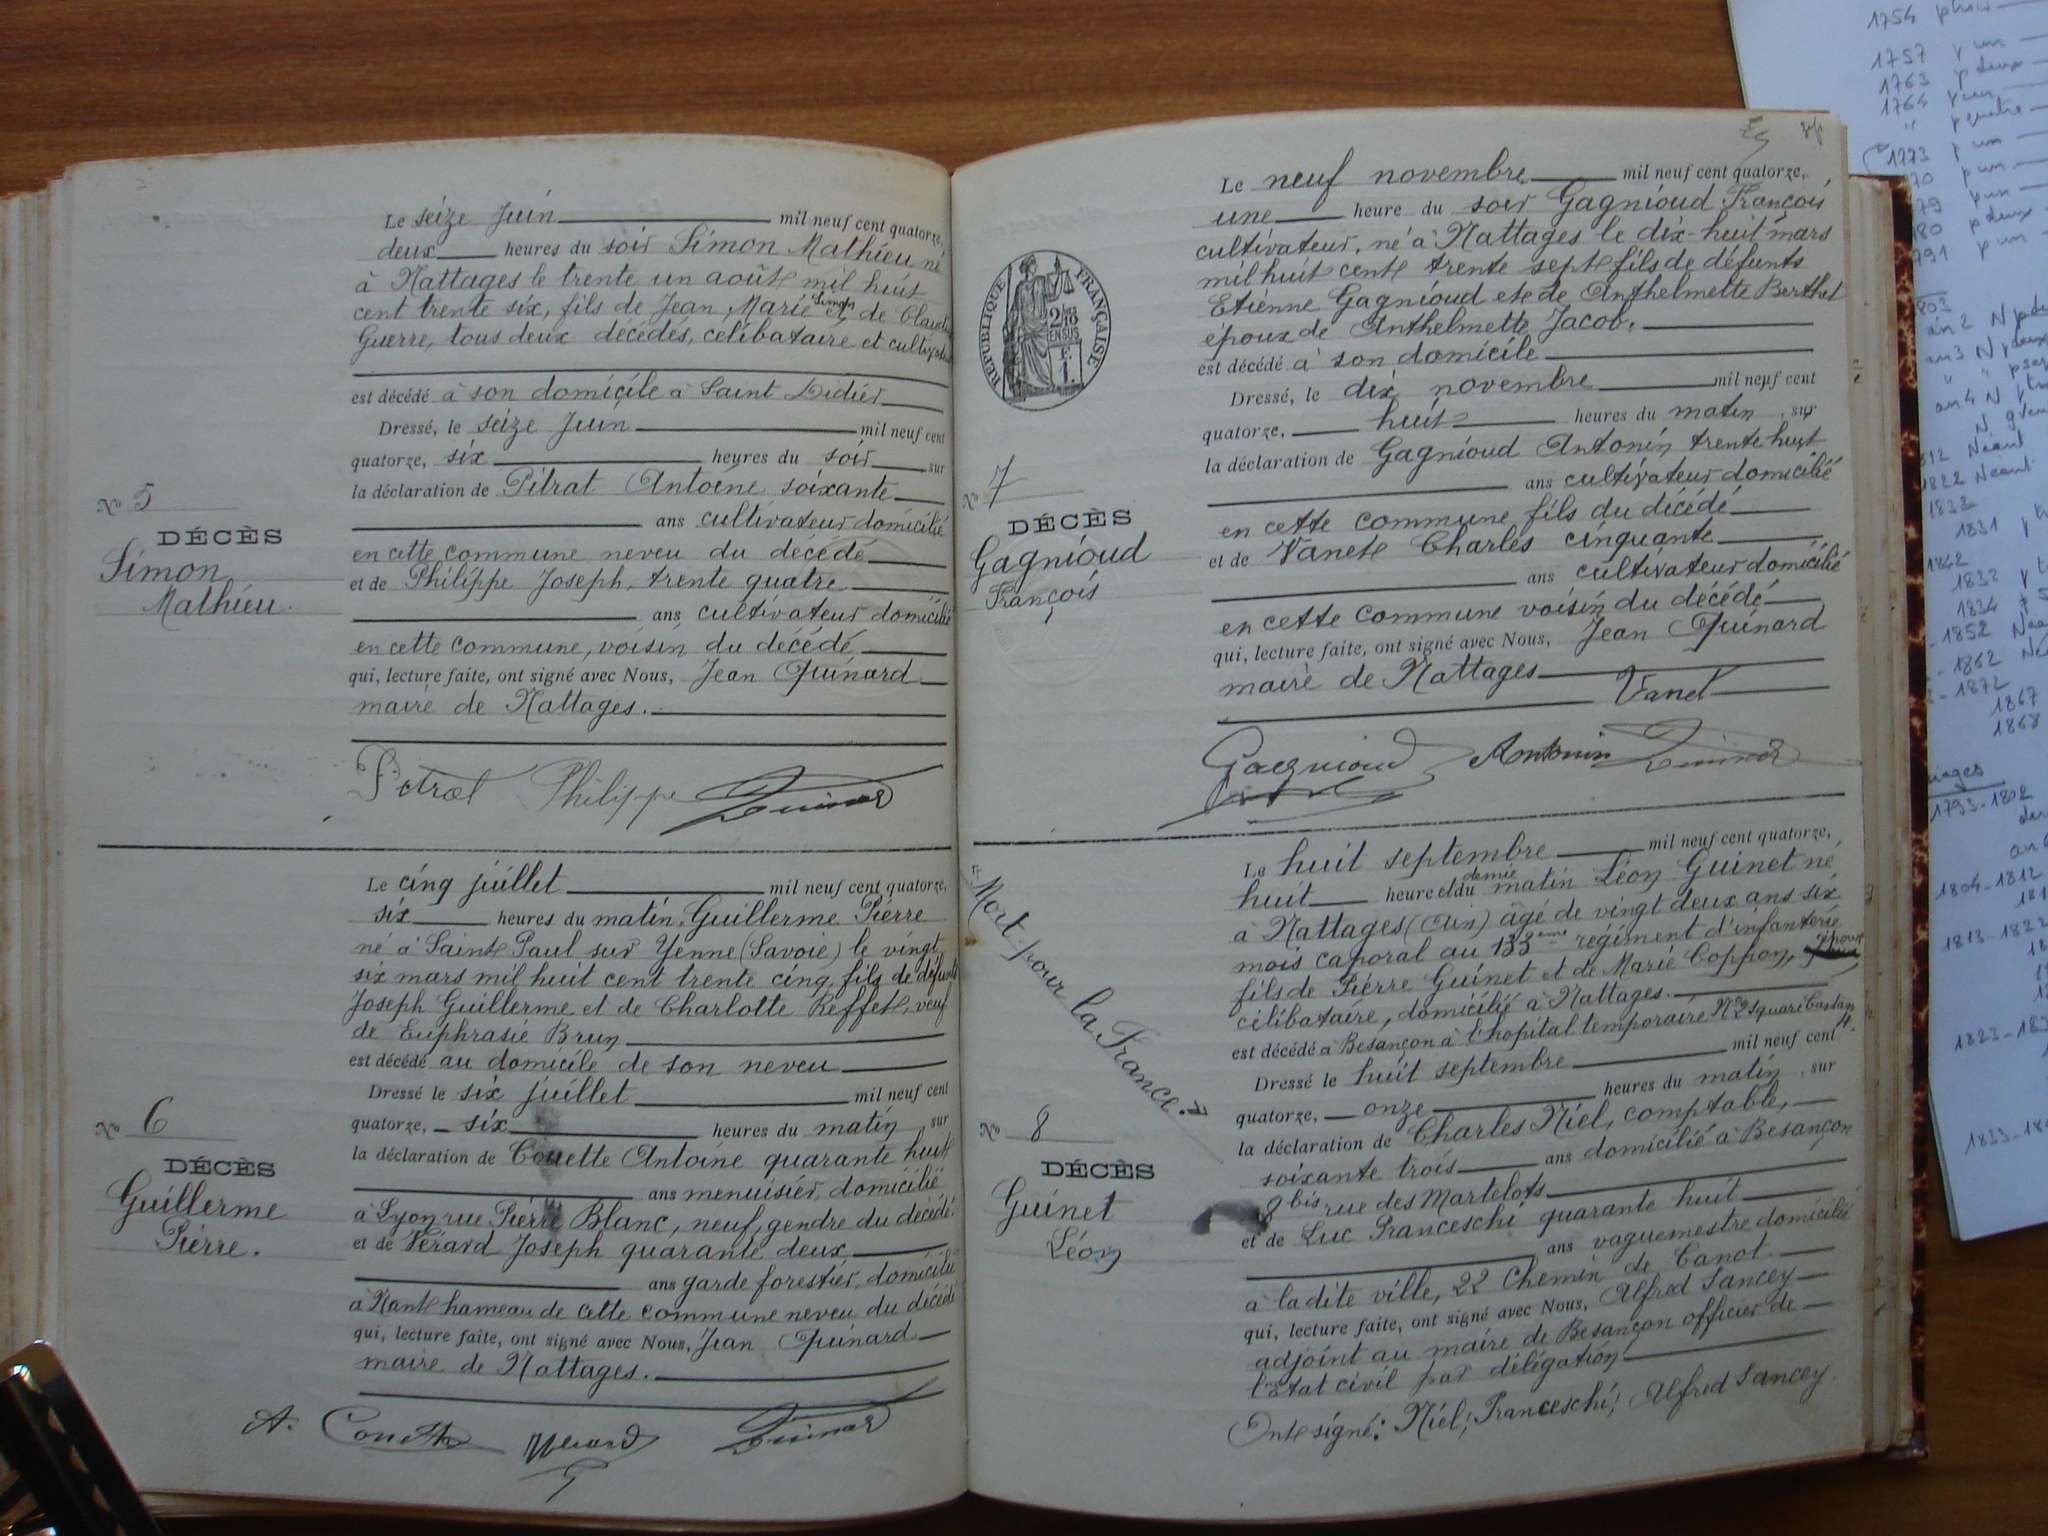 Le seize Juin mil neuf cent quatorze,
deux heures du soir Simon Mathieu né
à Nattages le trente un août mil huit
cent trente six, fils de Jean Marie Simon et de Claudine
Guerre, tous deux décédés, célibataire et cultivateur
est décédé à son domicile à Saint Didier
Dressé, le seize Juin mil neuf cent
quatorze, six heures du soir sur
la déclaration de Pitrat Antoine soixante
ans cultivateur domicilié
en cette commune neveu du décédé
et de Philippe Joseph, trente quatre
ans cultivateur domicilié
en cette commune, voisin du décédé
qui, lecture faite, ont signé avec Nous, Jean Quinard
maire de Nattages.
Pitrat Philippe Quinard
No 5
DÉCÈS
Simon
Mathieu.
Le cinq juillet mil neuf cent quatorze,
six heures du matin, Guillerme Pierre
né à Saint Paul sur Yenne (Savoie) le vingt
six mars mil huit cent trente cinq, fils de défunts
Joseph Guillerme et de Charlotte Reffet, veuf
de Euphrasie Brun
est décédé au domicile de son neveu
Dressé le six juillet mil neuf cent
quatorze, six heures du matin sur
la déclaration de Couette Antoine quarante huit
ans menuisier, domicilié
à Lyon rue Pierre Blanc, neuf, gendre du décédé
et de Vérard Joseph quarante deux
ans garde forestier, domicilié
à Nant hameau de cette commune neveu du décédé
qui, lecture faite, ont signé avec Nous, Jean Quinard
maire de Nattages.
A. Couette Verard Quinard
No 6
DÉCÈS
Guillerme
Pierre.
Le neuf novembre mil neuf cent quatorze,
une heure du soir Gagnioud François
cultivateur, né à Nattages le dix-huit mars
mil huit cent trente sept fils de défunts
Etienne Gagnioud et de Anthelmette Berthet
époux de Anthelmette Jacob.
est décédé à son domicile
Dressé, le dix novembre mil neuf cent
quatorze, huit heures du matin, sur
la déclaration de Gagnioud Antonin trente huit
ans cultivateur domicilié
en cette commune fils du décédé
et de Vanet Charles cinquante
ans cultivateur domicilié
en cette commune voisin du décédé
qui, lecture faite, ont signé avec Nous, Jean Quinard
maire de Nattages
Vanet
Gagnioud Antonin Quinard
RÉPUBLIQUE FRANÇAISE
No 7
DÉCÈS
Gagnioud
François
Le huit septembre mil neuf cent quatorze,
huit heure et demie du matin Léon Guinet né
à Nattages (Ain) âgé de vingt deux ans six
mois caporal au 133eme régiment d'infanterie
fils de Pierre Guinet et de Marie Coppon, époux
célibataire, domicilié à Nattages.
est décédé à Besançon à l'hôpital temporaire No 2 square Castan 4.
Dressé le huit septembre mil neuf cent
quatorze, onze heures du matin, sur
la déclaration de Charles Niel, comptable,
soixante trois ans domicilié à Besançon
8 bis rue des Martelots
et de Luc Franceschi quarante huit
ans vaguemestre domicilié
à ladite ville, 22 Chemin de Canot.
qui, lecture faite, ont signé avec Nous, Alfred Sancey
adjoint au maire de Besançon officier de
l'Etat civil par délégation
Ont signé: Niel; Franceschi; Alfred Sancey.
"Mort pour la France."
No 8
DÉCÈS
Guinet
Léon
1754
1757 p un
1763 p deux
1764 p un
" p quatre
1773 p un
p un
p un
p deux
p un
1812 Néant
1822 Néant
1832
1831
1842
1832
1834
1852
1862
1872
1867
1868
1793-1802
1804-1812
1813-1822